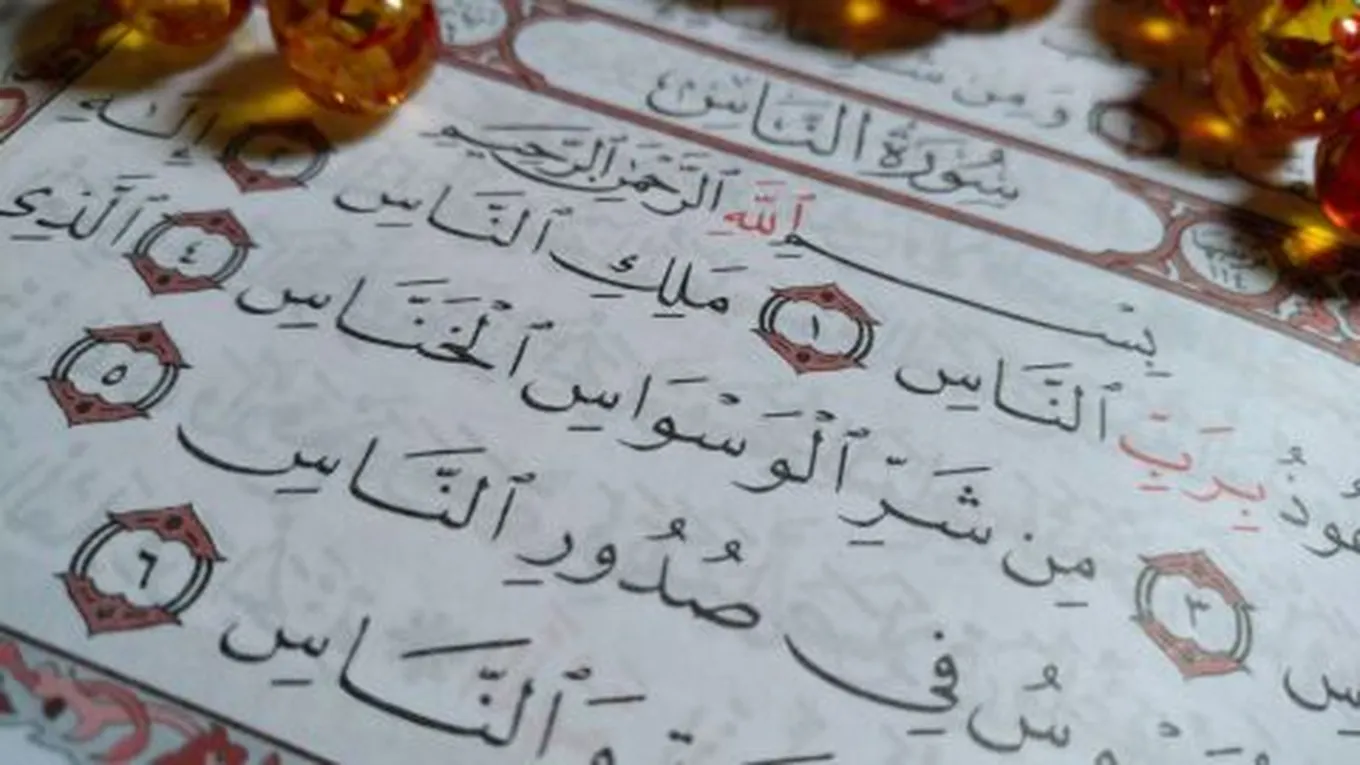 سُورَةُ النَّاسِ
بِسْمِ ٱللَّهِ ٱلرَّحْمَٰنِ ٱلرَّحِيمِ
بِرَبِّ ٱلنَّاسِ ١ مَلِكِ ٱلنَّاسِ ٢ إِلَٰهِ
ٱلنَّاسِ ٣ مِن شَرِّ ٱلْوَسْوَاسِ ٱلْخَنَّاسِ ٤ ٱلَّذِي
فِي صُدُورِ ٱلنَّاسِ ٥
وَٱلنَّاسِ ٦